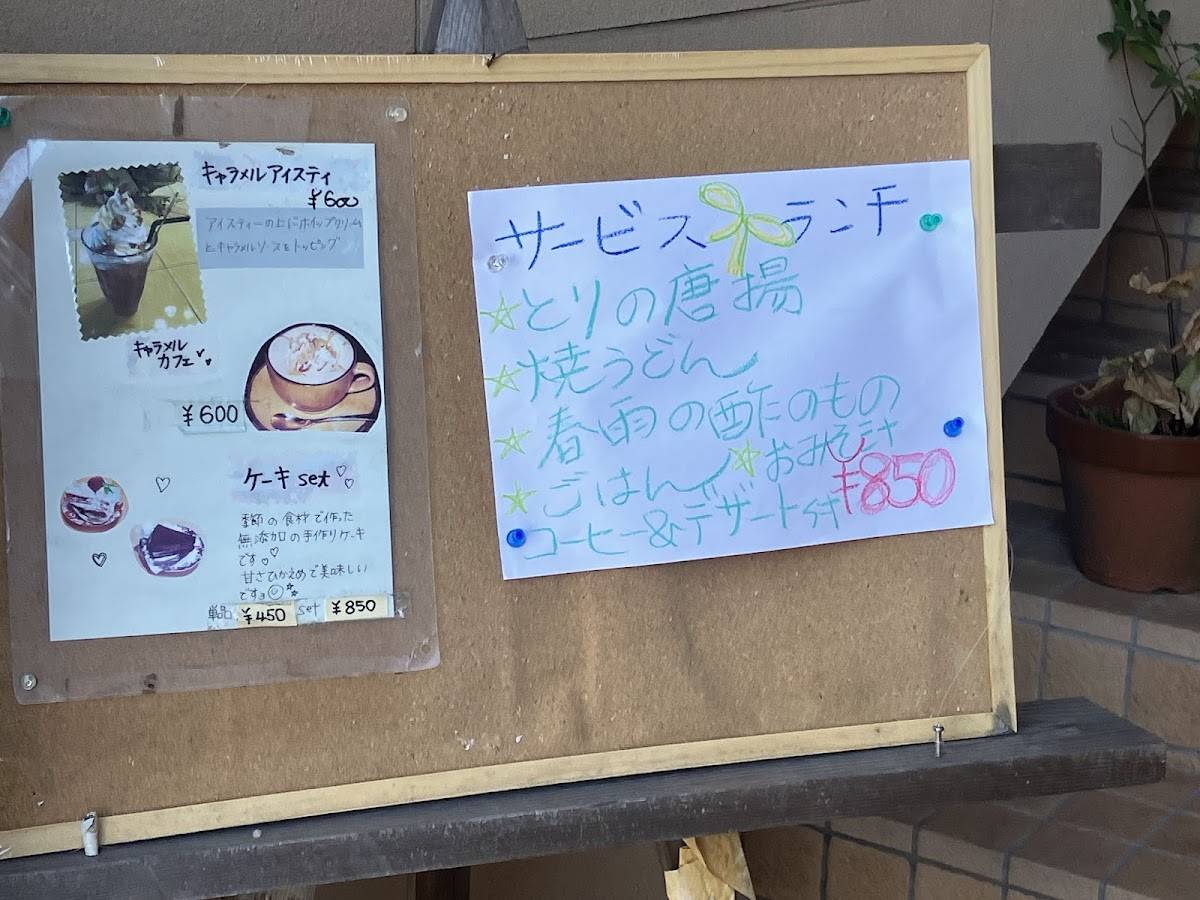 キャラメルアイスティ
¥600
アイスティーの上にホイップクリーム
とキャラメルソースをトッピング
キャラメル
カフェ
¥600
ケーキ set
季節の食材で作った
無添加の手作りケーキ
です♡
甘さひかえめで美味しい
ですョ
単品 ¥450 set ¥850
サービスランチ
☆とりの唐揚
☆焼うどん
☆春雨の酢のもの
☆ごはん ☆おみそ汁
コーヒー&デザート付 ¥850